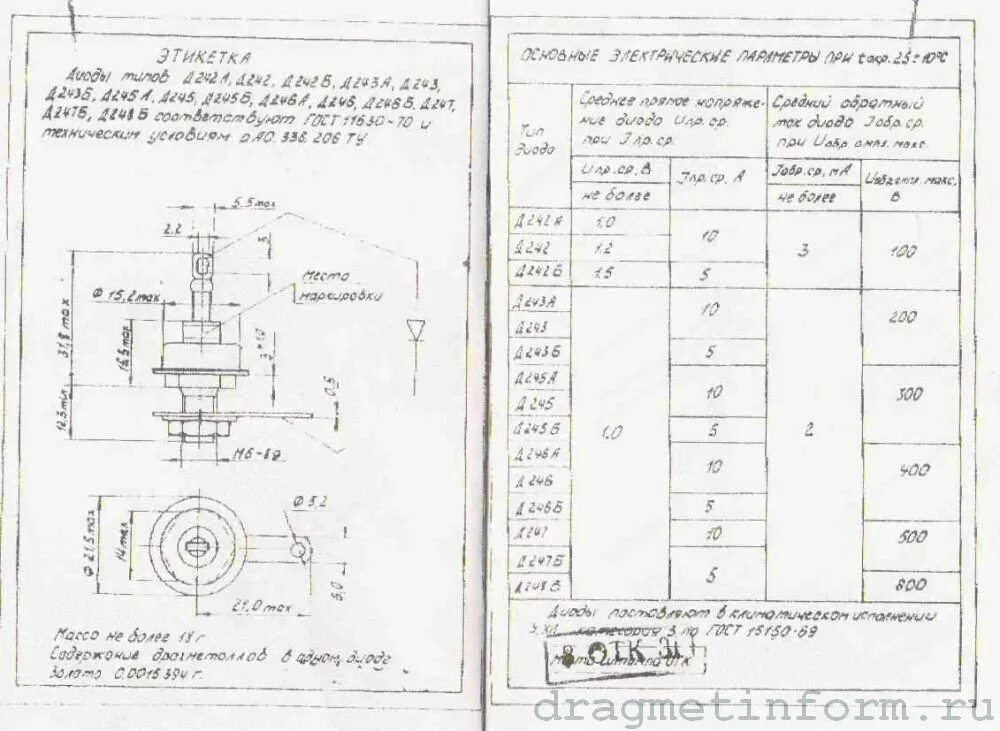 ЭТИКЕТКА
Диоды типов Д242А, Д242, Д242Б, Д243А, Д243,
Д243Б, Д245А, Д245, Д245Б, Д246А, Д246, Д246Б, Д247,
Д247Б, Д248Б соответствуют ГОСТ 11630-70 и
техническим условиям аА0. 336. 206 ТУ
5.5 max
2.2
3
Место
маркировки
Ф 15,2 max
31,8 max
16,5 max
12,5 min
0,5
М6-8g
Ф 5,2
Ф 21,5 max
14 max
6,0
21,0 max
Масса не более 18 г
Содержание драгметаллов в одном диоде
Золото 0.0015394 г.
ОСНОВНЫЕ ЭЛЕКТРИЧЕСКИЕ ПАРАМЕТРЫ ПРИ tокр. 25±10°С
Тип
диода
Среднее прямое напряже-
ние диода Uпр. ср.
при Iпр. ср.
Средний обратный
ток диода Iобр. ср.
при Uобр. ампл. макс.
Uпр. ср. В
не более
Iпр. ср. А
Iобр. ср. мА
не более
Uобр.ампл. макс,
В
Д242А 1.0 10 3 100
Д242 1.2
Д242Б 1.5 5
Д243А 1.0 10 2 200
Д243
Д243Б 5
Д245А 10 300
Д245
Д245Б 5
Д246А 10 400
Д246
Д246Б 5
Д247 10 500
Д247Б 5
Д248Б 600
Диоды поставляют в климатическом исполнении
категория 3 по ГОСТ 15150-69
ОТК 31
Место штампа ОТК
dragmetinform.ru